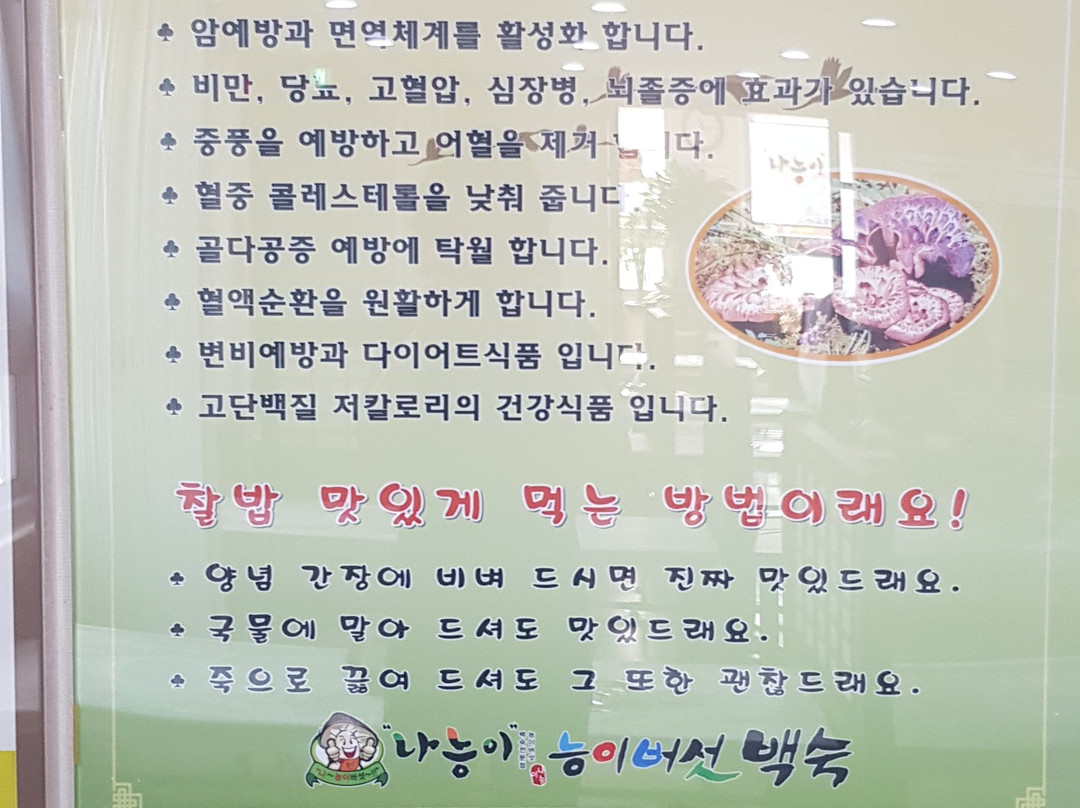 ♣ 암예방과 면역체계를 활성화 합니다.
♣ 비만, 당뇨, 고혈압, 심장병, 뇌졸증에 효과가 있습니다.
♣ 중풍을 예방하고 어혈을 제거 합니다.
♣ 혈중 콜레스테롤을 낮춰 줍니다.
♣ 골다공증 예방에 탁월 합니다.
♣ 혈액순환을 원활하게 합니다.
♣ 변비예방과 다이어트식품 입니다.
♣ 고단백질 저칼로리의 건강식품 입니다.
찰밥 맛있게 먹는 방법이래요!
♣ 양념 간장에 비벼 드시면 진짜 맛있드래요.
♣ 국물에 말아 드셔도 맛있드래요.
♣ 죽으로 끓여 드셔도 그 또한 괜찮드래요.
"나능이" 능이버섯 백숙